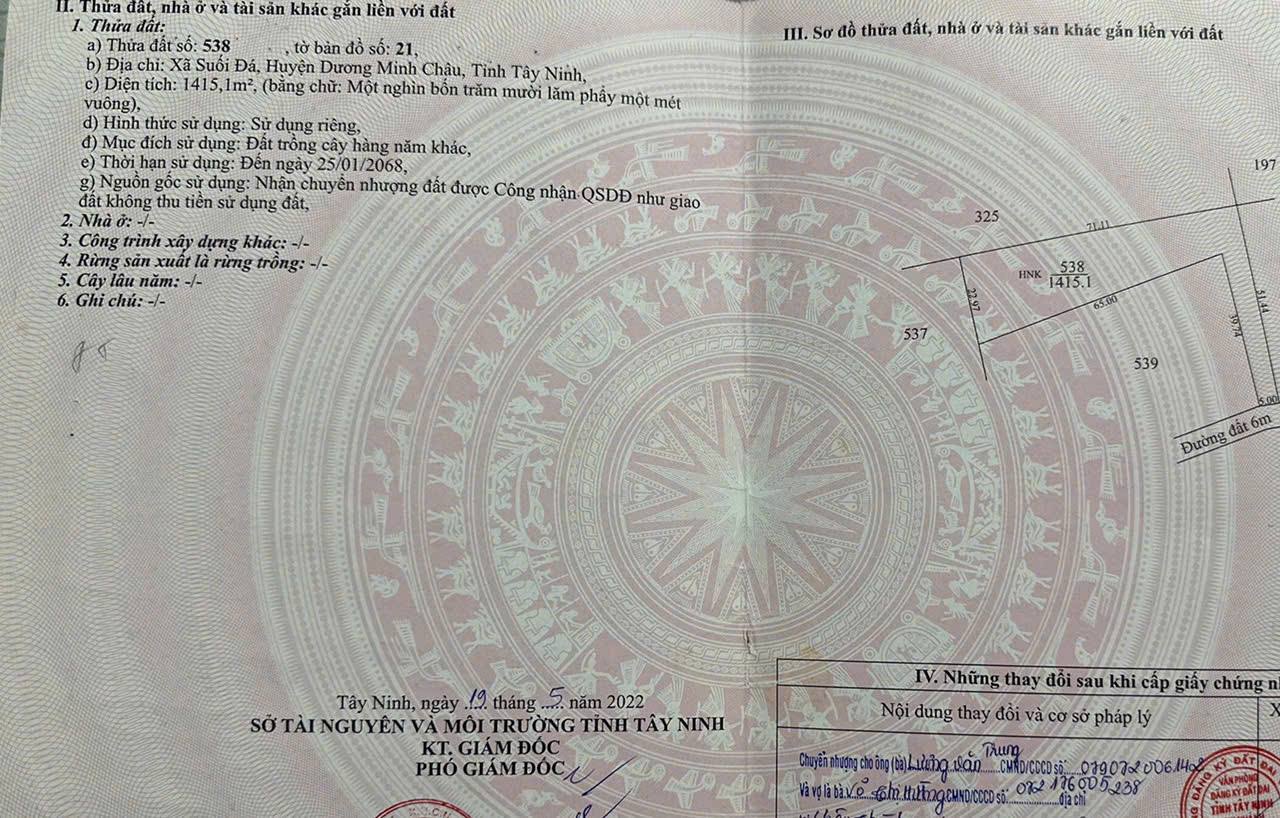 II. Thửa đất, nhà ở và tài sản khác gắn liền với đất
1. Thửa đất:
a) Thửa đất số: 538 , tờ bản đồ số: 21,
b) Địa chỉ: Xã Suối Đá, Huyện Dương Minh Châu, Tỉnh Tây Ninh,
c) Diện tích: 1415,1m², (bằng chữ: Một nghìn bốn trăm mười lăm phẩy một mét
vuông),
d) Hình thức sử dụng: Sử dụng riêng,
đ) Mục đích sử dụng: Đất trồng cây hàng năm khác,
e) Thời hạn sử dụng: Đến ngày 25/01/2068,
g) Nguồn gốc sử dụng: Nhận chuyển nhượng đất được Công nhận QSDĐ như giao
đất không thu tiền sử dụng đất,
2. Nhà ở: -/-
3. Công trình xây dựng khác: -/-
4. Rừng sản xuất là rừng trồng: -/-
5. Cây lâu năm: -/-
6. Ghi chú: -/-
Tây Ninh, ngày 19 tháng 5 năm 2022
SỞ TÀI NGUYÊN VÀ MÔI TRƯỜNG TỈNH TÂY NINH
KT. GIÁM ĐỐC
PHÓ GIÁM ĐỐC
III. Sơ đồ thửa đất, nhà ở và tài sản khác gắn liền với đất
197
325
71.11
HNK 538
1415.1
22.97
65.00
51.44
39.74
537
539
5.00
Đường đất 6m
IV. Những thay đổi sau khi cấp giấy chứng
Nội dung thay đổi và cơ sở pháp lý
X
Chuyển nhượng cho ông (bà) Lương Văn Trung CMND/CCCD số: 0790720061402
Và vợ là bà: Võ Thị Hường CMND/CCCD số: 072176005238 địa chỉ
ĐĂNG KÝ ĐẤT ĐAI
VĂN PHÒNG
ĐĂNG KÝ ĐẤT ĐAI
TỈNH TÂY NINH